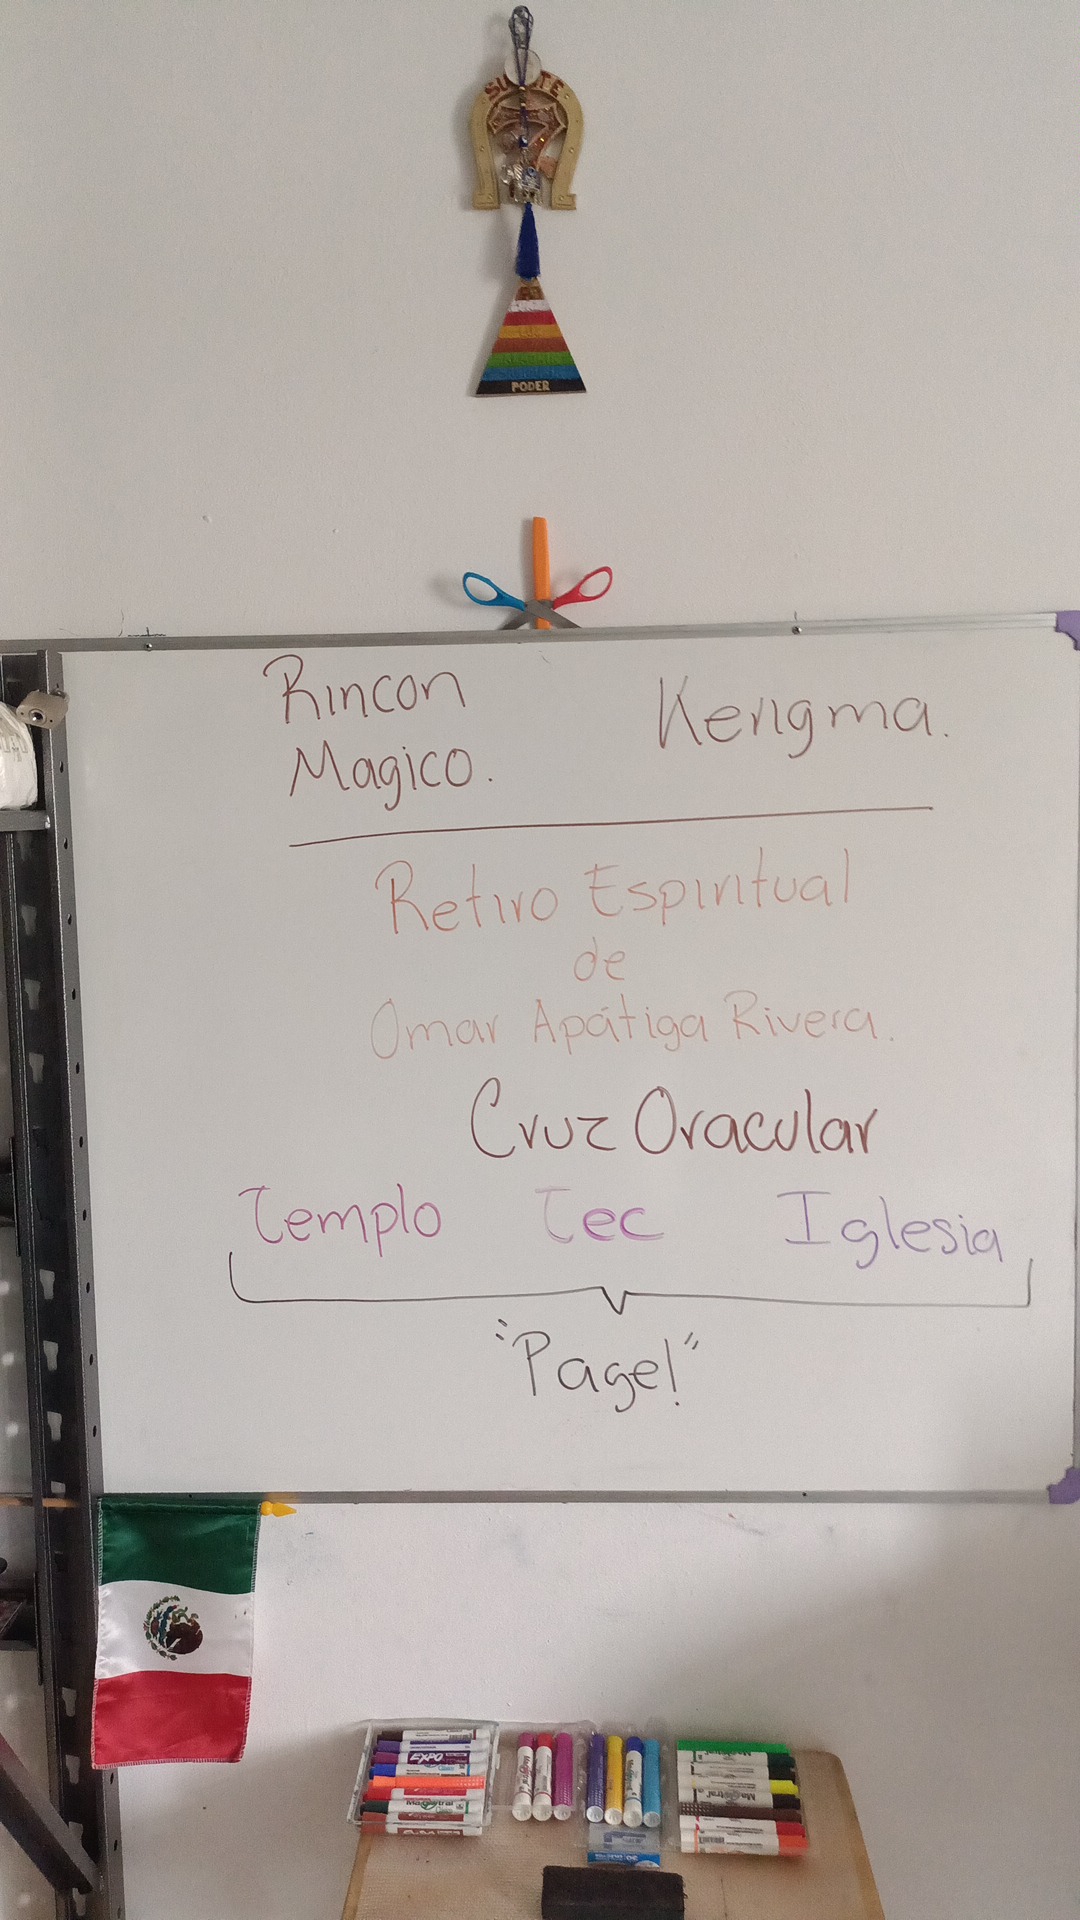 SUERTE
7
PODER
Rincon
Magico.
Kerigma.
Retiro Espiritual
de
Omar Apátiga Rivera.
Cruz Oracular
Templo Tec Iglesia
"Page!"
EXPO
Magistral
Magistral
Magistral